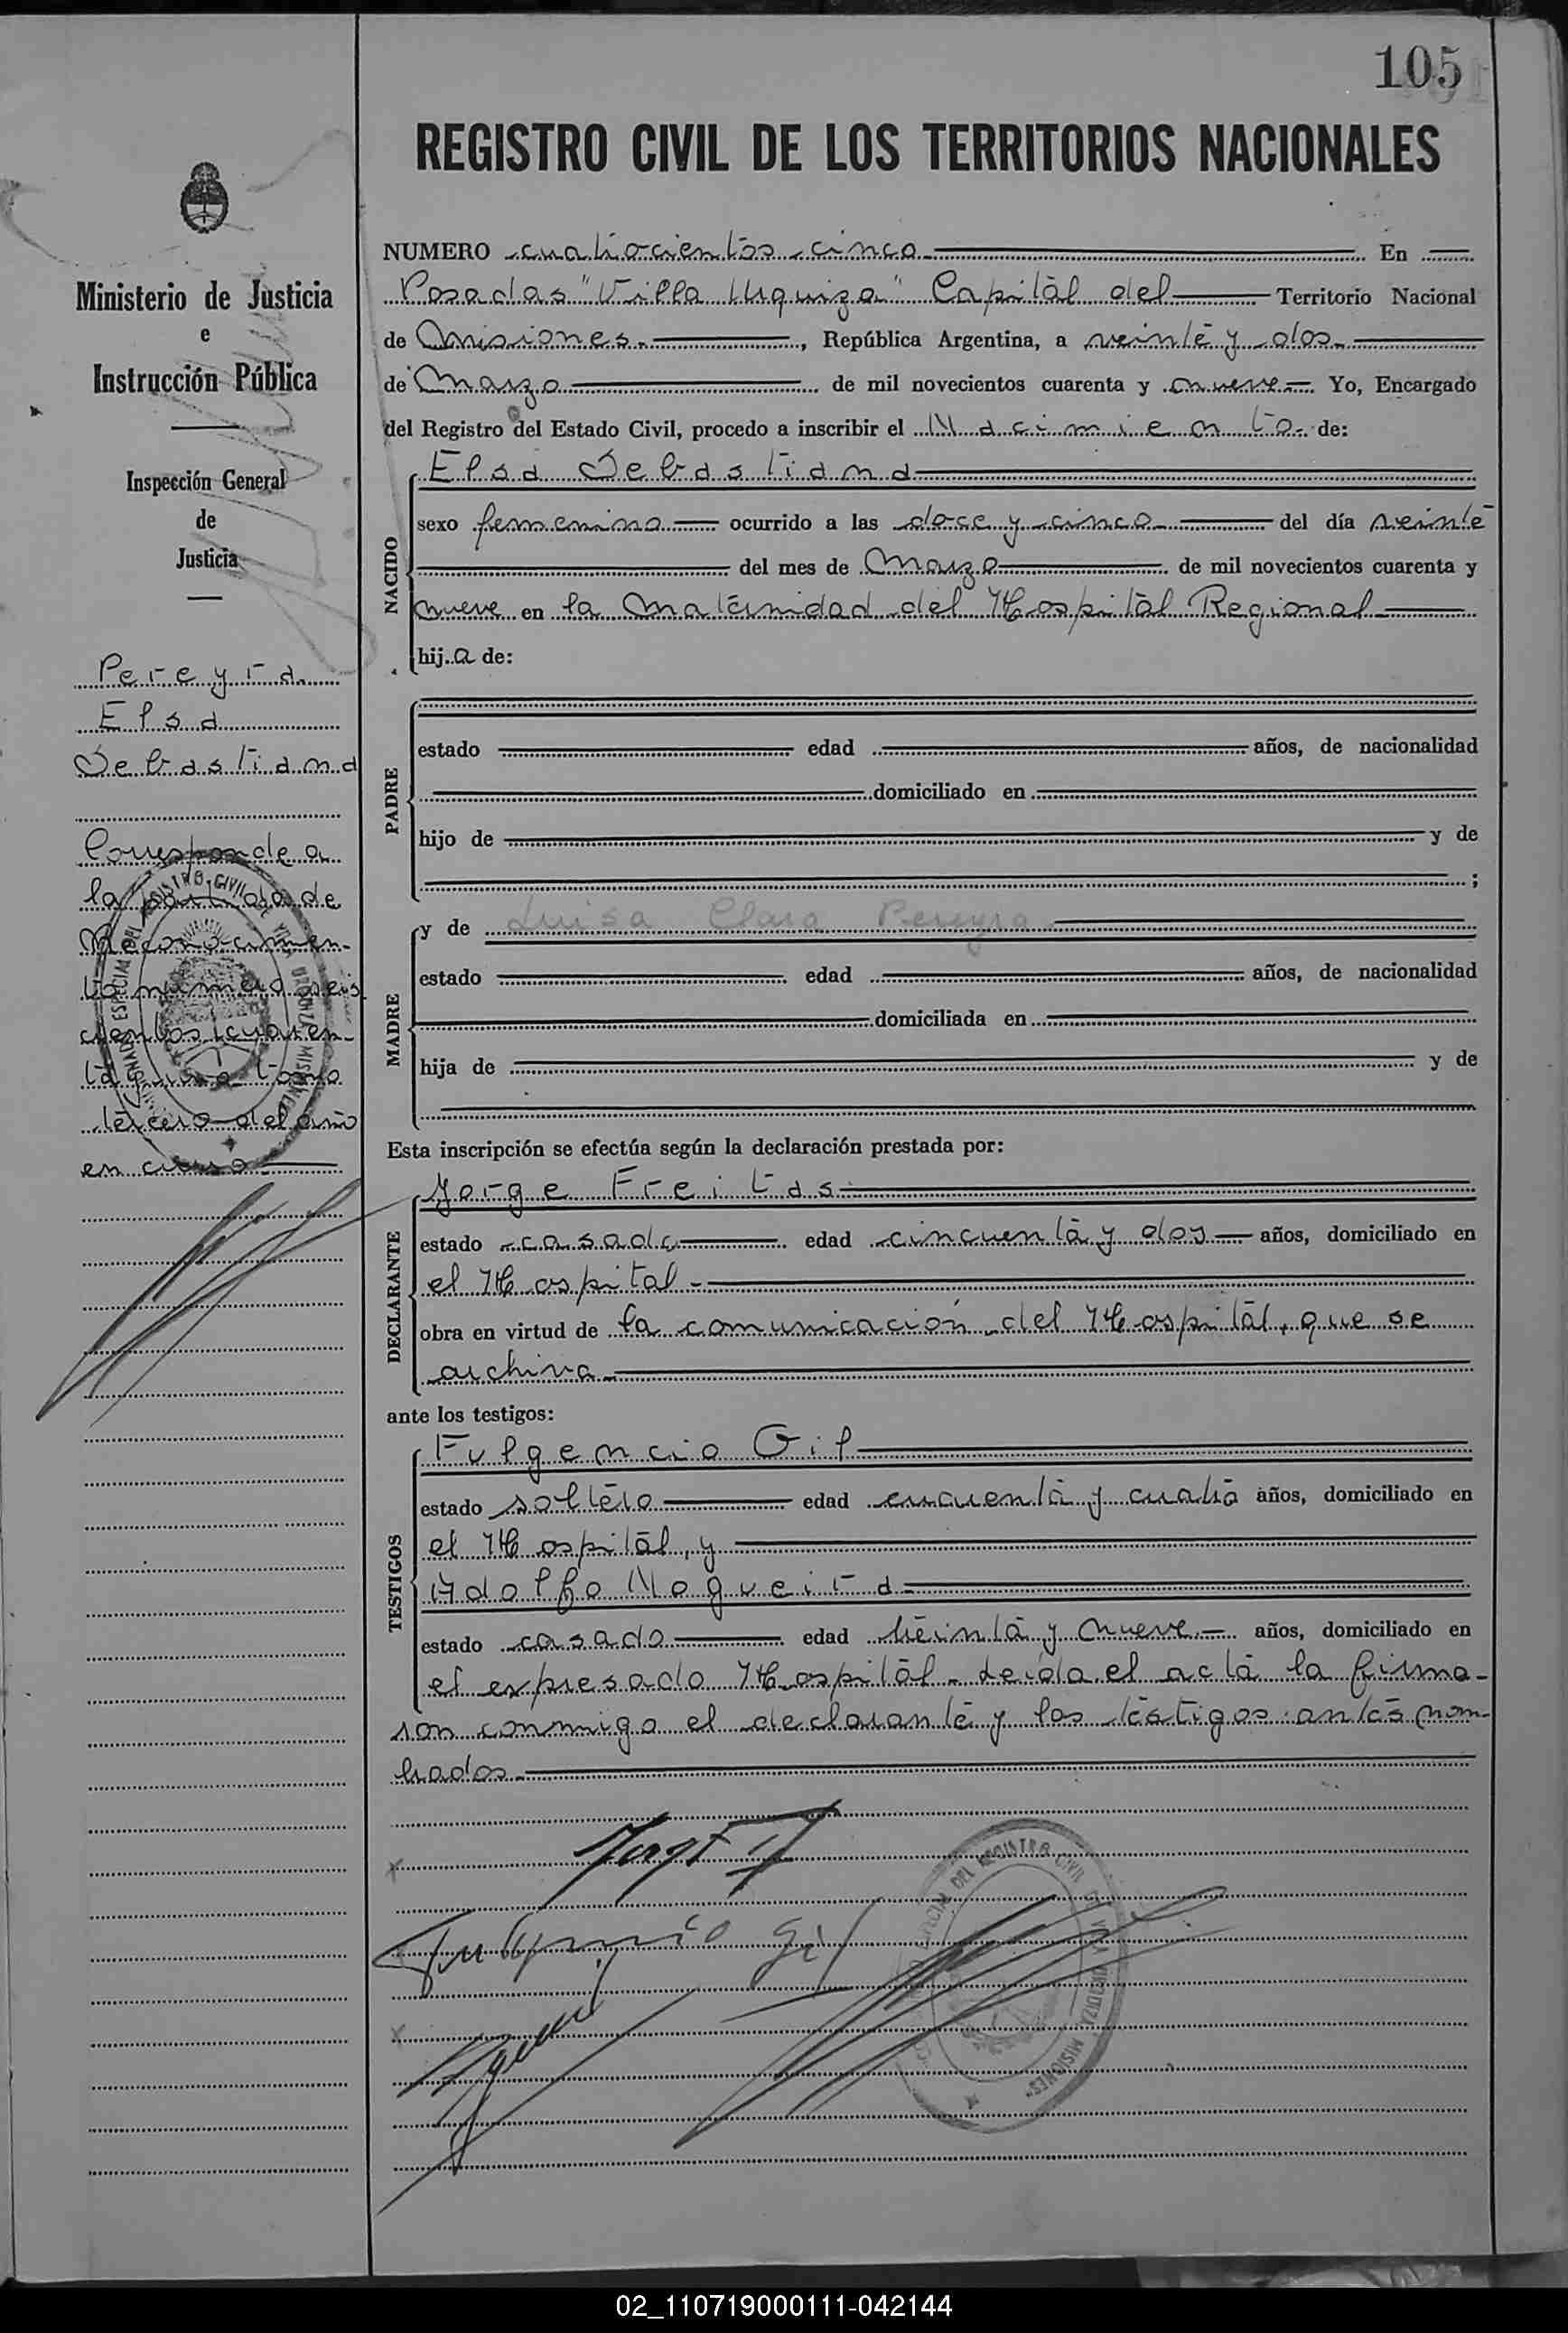 105
REGISTRO CIVIL DE LOS TERRITORIOS NACIONALES
Ministerio de Justicia
e
Instrucción Pública
Inspección General
de
Justicia
Pereyra
Elsa
Sebastiana
Corresponde a
la partida de
Reconocimien-
to número seis
cientos cuaren-
ta y una tomo
tercero del año
en curso
NUMERO cuatrocientos cinco En
Posadas "Villa Urquiza" Capital del Territorio Nacional
de Misiones, República Argentina, a veinte y dos
de Marzo de mil novecientos cuarenta y nueve Yo, Encargado
del Registro del Estado Civil, procedo a inscribir el Nacimiento de:
NACIDO
Elsa Sebastiana
sexo femenino ocurrido a las doce y cinco del día veinte
del mes de Marzo de mil novecientos cuarenta y
nueve en la Maternidad del Hospital Regional
hija de:
PADRE
estado edad años, de nacionalidad
domiciliado en
hijo de y de
;
MADRE
y de Luisa Clara Pereyra
estado edad años, de nacionalidad
domiciliada en
hija de y de
Esta inscripción se efectúa según la declaración prestada por:
DECLARANTE
Jorge Freitas
estado casado edad cincuenta y dos años, domiciliado en
el Hospital
obra en virtud de la comunicación del Hospital, que se
archiva
ante los testigos:
TESTIGOS
Fulgencio Gil
estado soltero edad cincuenta y cuatro años, domiciliado en
el Hospital, y
Adolfo Nogueira
estado casado edad treinta y nueve años, domiciliado en
el expresado Hospital. Leída el acta la firma-
ron conmigo el declarante y los testigos antes nom-
brados
Fulgencio Gil
DEL REGISTRO CIVIL DE VILLA URQUIZA MISIONES
02_110719000111-042144